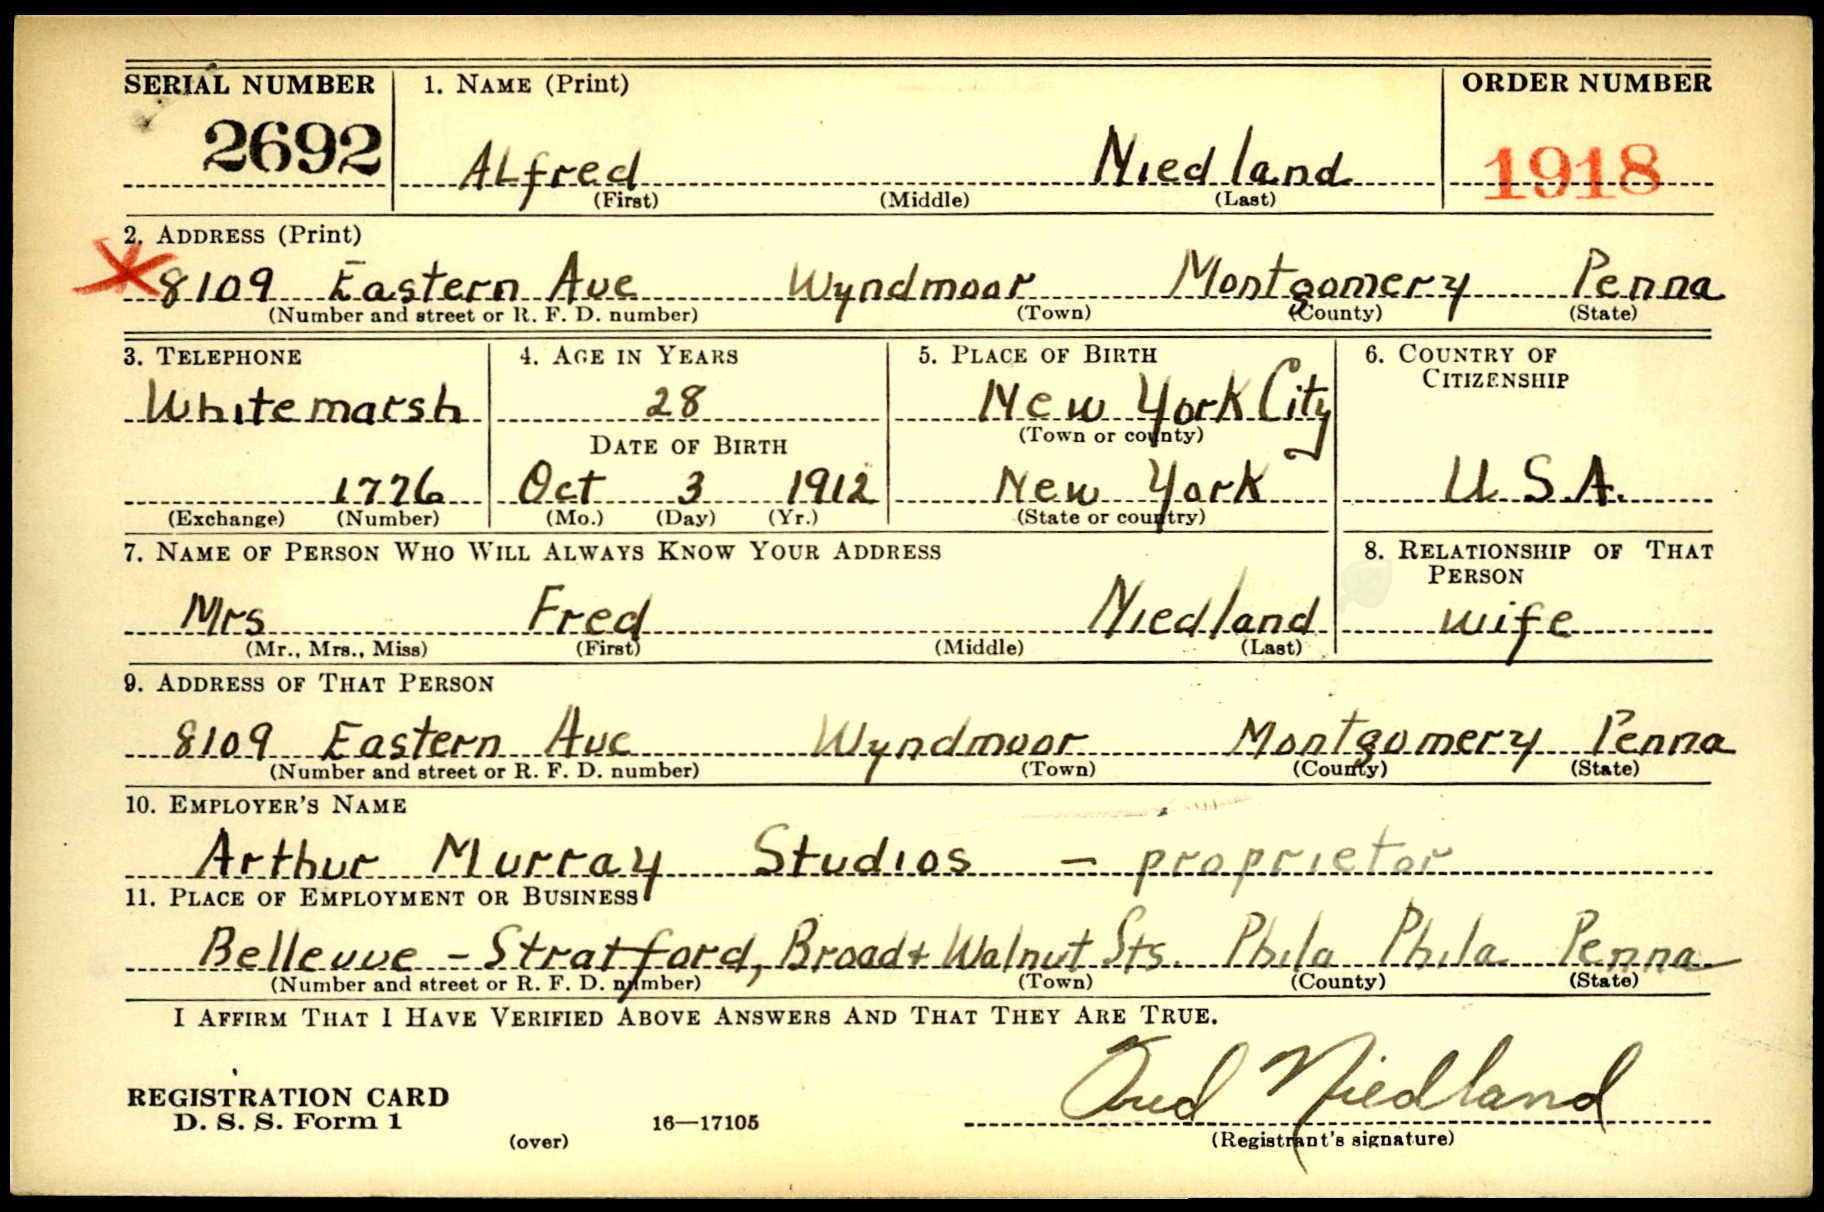 SERIAL NUMBER 1. NAME (Print) ORDER NUMBER
2692 ALfred Niedland 1918
(First) (Middle) (Last)
2. ADDRESS (Print)
8109 Eastern Ave Wyndmoor Montgomery Penna
(Number and street or R. F. D. number) (Town) (County) (State)
3. TELEPHONE 4. AGE IN YEARS 5. PLACE OF BIRTH 6. COUNTRY OF
CITIZENSHIP
Whitemarsh 28 New York City
(Town or county)
DATE OF BIRTH
1776 Oct 3 1912 New York U.S.A.
(Exchange) (Number) (Mo.) (Day) (Yr.) (State or country)
7. NAME OF PERSON WHO WILL ALWAYS KNOW YOUR ADDRESS 8. RELATIONSHIP OF THAT
PERSON
Mrs Fred Niedland wife
(Mr., Mrs., Miss) (First) (Middle) (Last)
9. ADDRESS OF THAT PERSON
8109 Eastern Ave Wyndmoor Montgomery Penna
(Number and street or R. F. D. number) (Town) (County) (State)
10. EMPLOYER'S NAME
Arthur Murray Studios - proprietor
11. PLACE OF EMPLOYMENT OR BUSINESS
Bellevue - Stratford, Broad & Walnut Sts. Phila Phila Penna
(Number and street or R. F. D. number) (Town) (County) (State)
I AFFIRM THAT I HAVE VERIFIED ABOVE ANSWERS AND THAT THEY ARE TRUE.
Fred Niedland
REGISTRATION CARD
D. S. S. Form 1 16—17105
(over) (Registrant's signature)